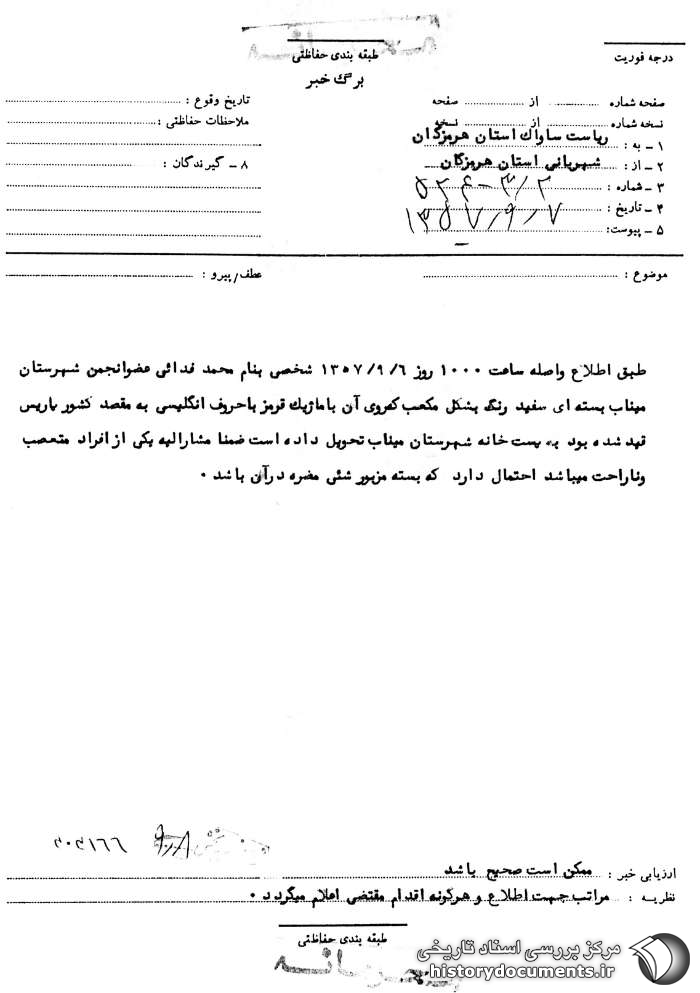 طبقه بندی حفاظتی
درجه فوریت
برگ خبر
صفحه شماره از صفحه
تاریخ وقوع :
نسخه شماره از نسخه
ملاحظات حفاظتی :
۱ - به : ریاست ساواک استان هرمزگان
۲ - از : شهربانی استان هرمزگان
۸ - گیرندگان :
۳ - شماره :
۴ - تاریخ : ۱۳۵۷/۹/۷
۵ - پیوست: -
موضوع :
عطف/پیرو :
طبق اطلاع واصله ساعت ۱۰۰۰ روز ۱۳۵۷/۹/۶ شخصی بنام محمد فدائی عضوانجمن شهرستان
میناب بسته ای سفید رنگ بشکل مکعب که روی آن باماژیک قرمز باحروف انگلیسی به مقصد کشور پاریس
قید شده بود به پست خانه شهرستان میناب تحویل داده است ضمنا مشارالیه یکی از افراد متعصب
وناراحت میباشد احتمال دارد که بسته مزبور شئی مضره درآن باشد ۰
۳۰۳۱۶۶
ارزیابی خبر : ممکن است صحیح باشد
نظریه : مراتب جهت اطلاع و هرگونه اقدام مقتضی اعلام میگردد ۰
طبقه بندی حفاظتی
محرمانه
مرکز بررسی اسناد تاریخی
historydocuments.ir